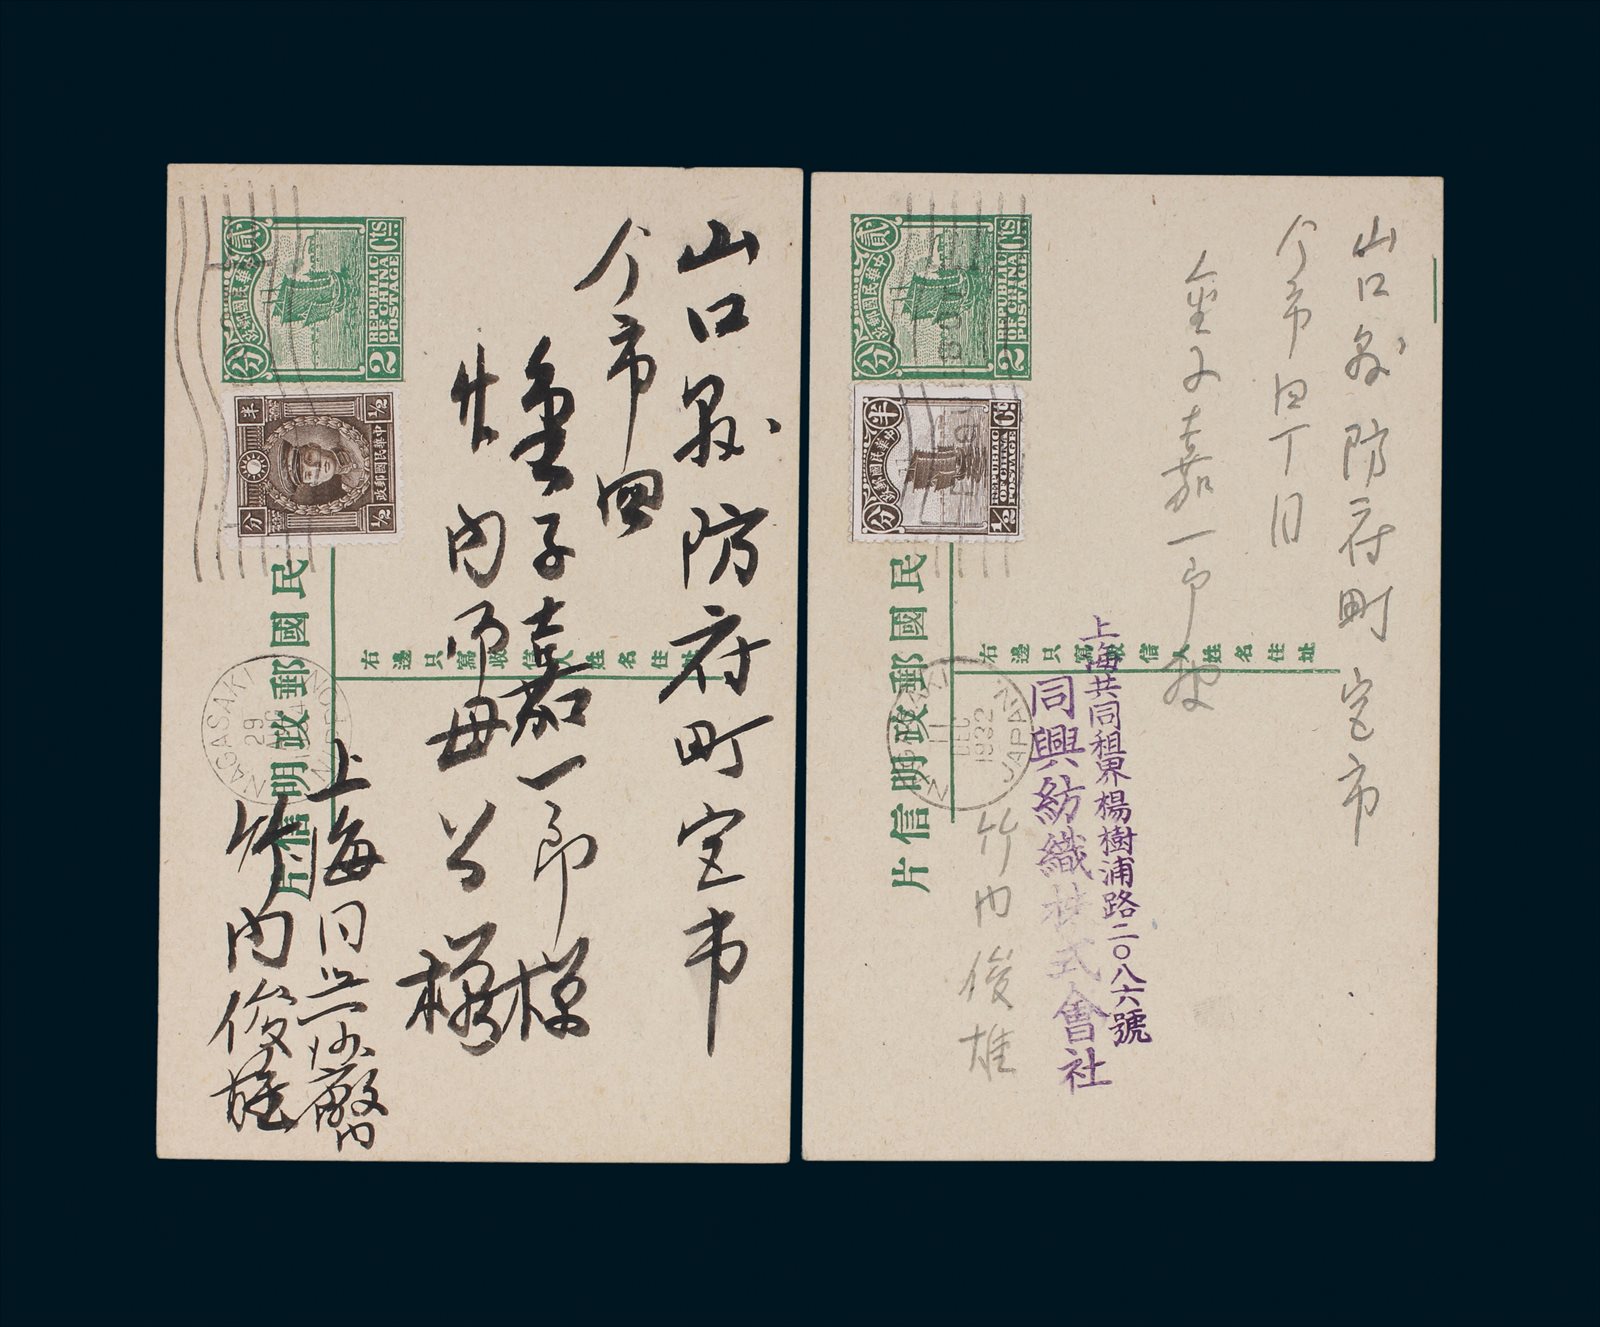 山口県防府町宮市
今市四
金子嘉一郎様
竹内御母公様
上海同興紗廠内
竹内俊雄
民國郵政明信片
右邊只寫收信人姓名住址
貳分
中華民國郵政
REPUBLIC OF CHINA POSTAGE
2 Cts
半分
1/2
中華民國郵政
1/2
NAGASAKI
29
NIPPON
山口県防府町宮市
今市四丁目
金子嘉一郎様
上海共同租界楊樹浦路二〇八六號
同興紡織株式會社
竹内俊雄
民國郵政明信片
右邊只寫收信人姓名住址
貳分
中華民國郵政
REPUBLIC OF CHINA POSTAGE
2 Cts
半分
中華民國郵政
REPUBLIC OF CHINA POSTAGE
1/2 Ct
11
DEC
1932
JAPAN